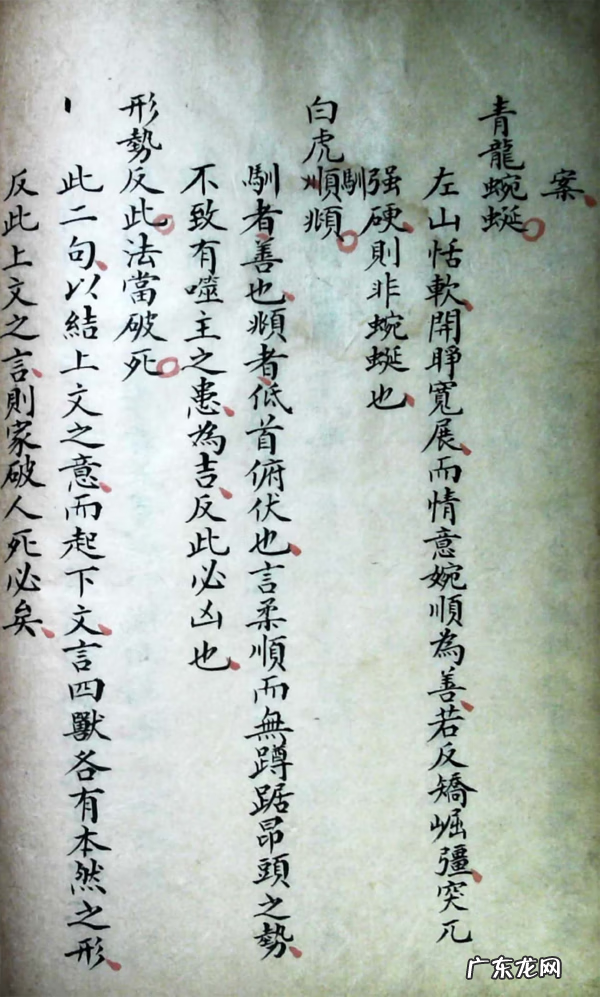 案
青龍蜿蜒
左山恬軟開睜寬展而情意婉順為善若反矯崛彊突兀
强硬則非蜿蜒也
馴
白虎順頫
馴者善也頫者低首俯伏也言柔順而無蹲踞昂頭之勢
不致有噬主之患為吉反此必凶也
形勢反此法當破死
此二句以結上文之意而起下文言四獸各有本然之形
反此上文之言則家破人死必矣
广东龙网